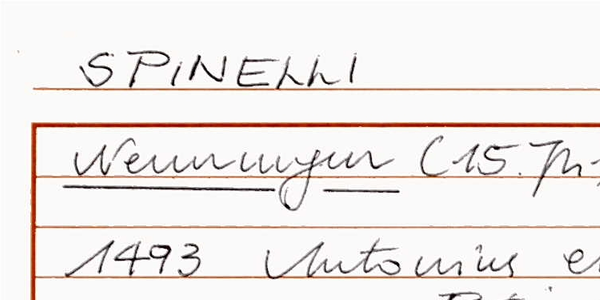 SPINELLI
Nennungen (15. Jh.
1493 Antonius